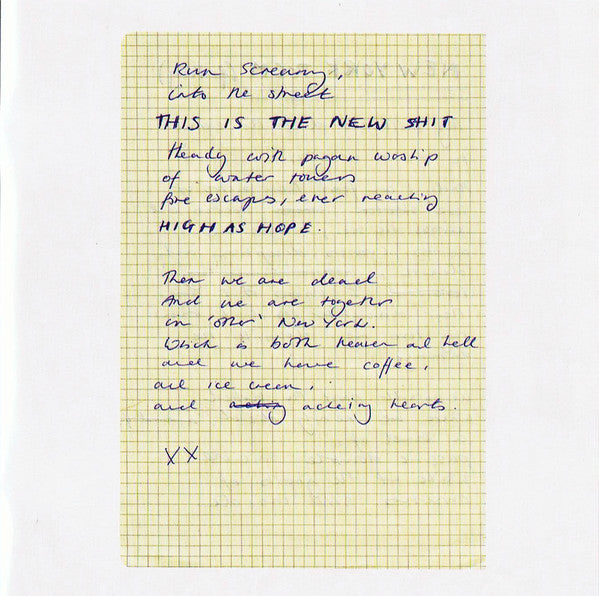 Run Screaming,
into the street
THIS IS THE NEW SHIT
Heady with pagan worship
of water towers
fire escapes, ever reaching
HIGH AS HOPE.
Then we are dead
And we are together
in 'other' New York.
Which is both heaven and hell
and we have coffee,
and ice cream,
and acheing hearts.
XX